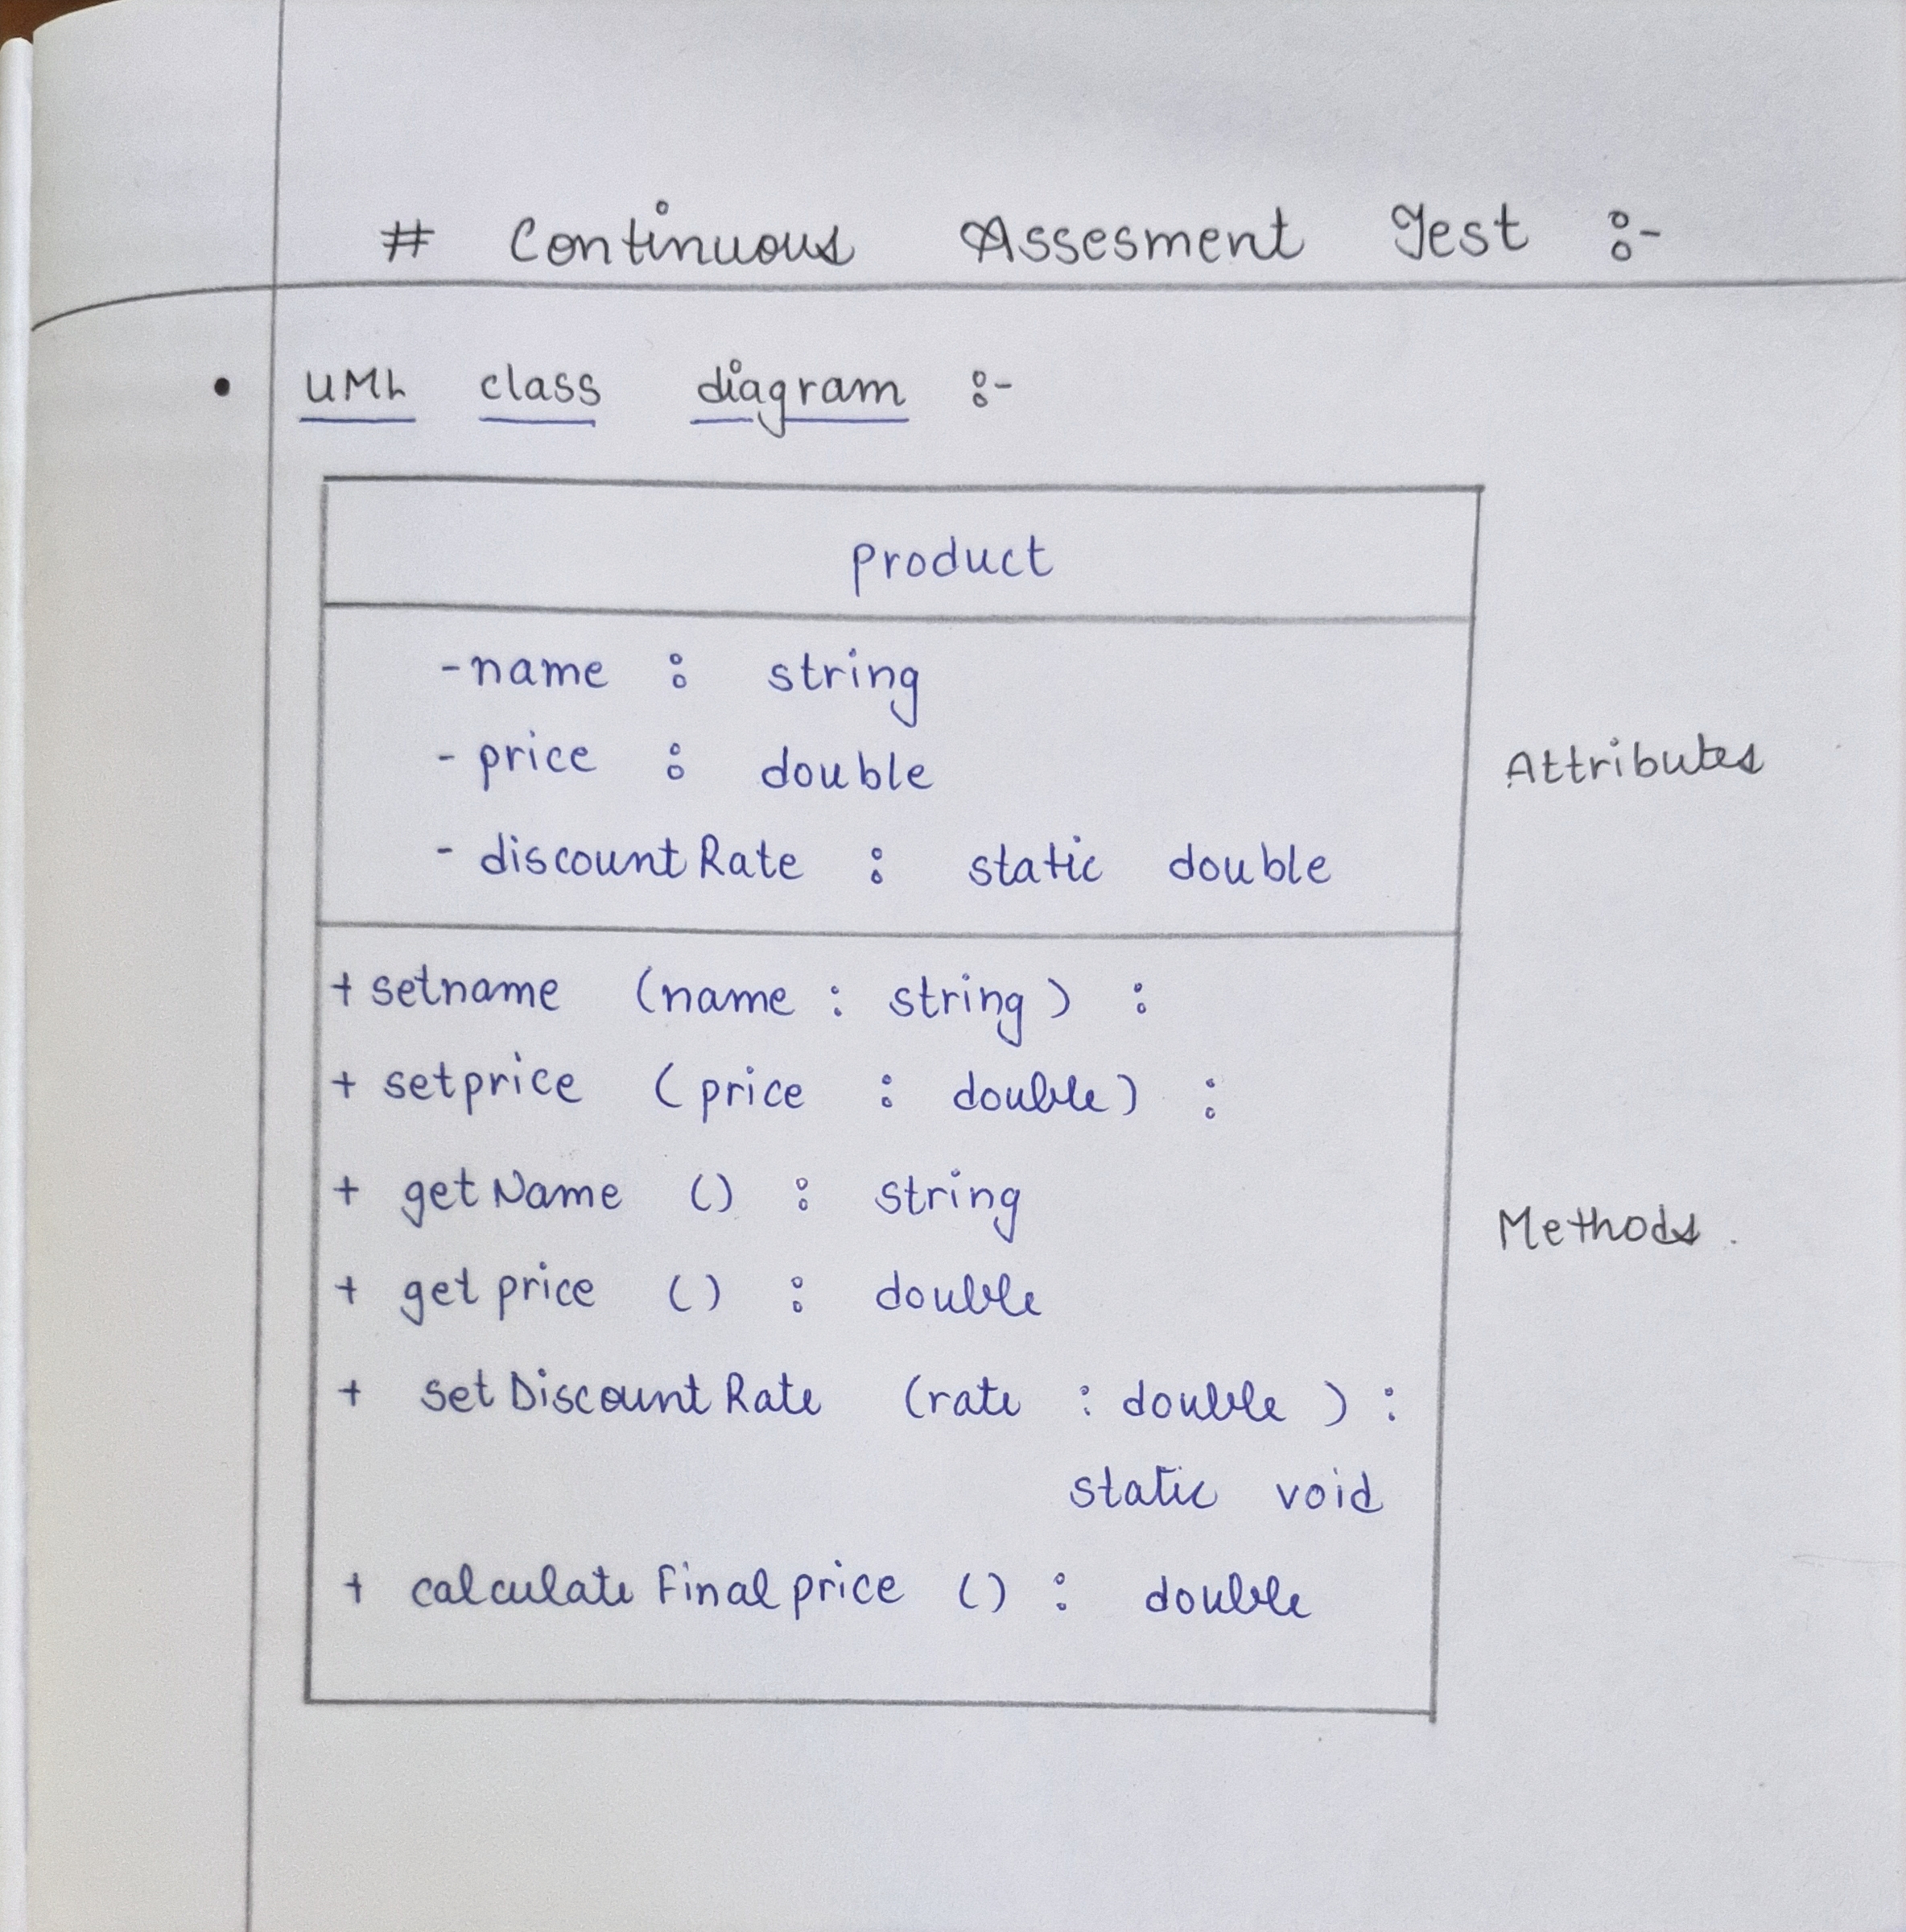 # Continuous Assesment Test :-
• UML class diagram :-
product
-name : string
- price : double
- discountRate : static double
Attributes
+ setname (name : string) :
+ setprice (price : double) :
+ getName () : string
+ getprice () : double
Methods.
+ setDiscountRate (rate : double) :
static void
+ calculateFinalprice () : double